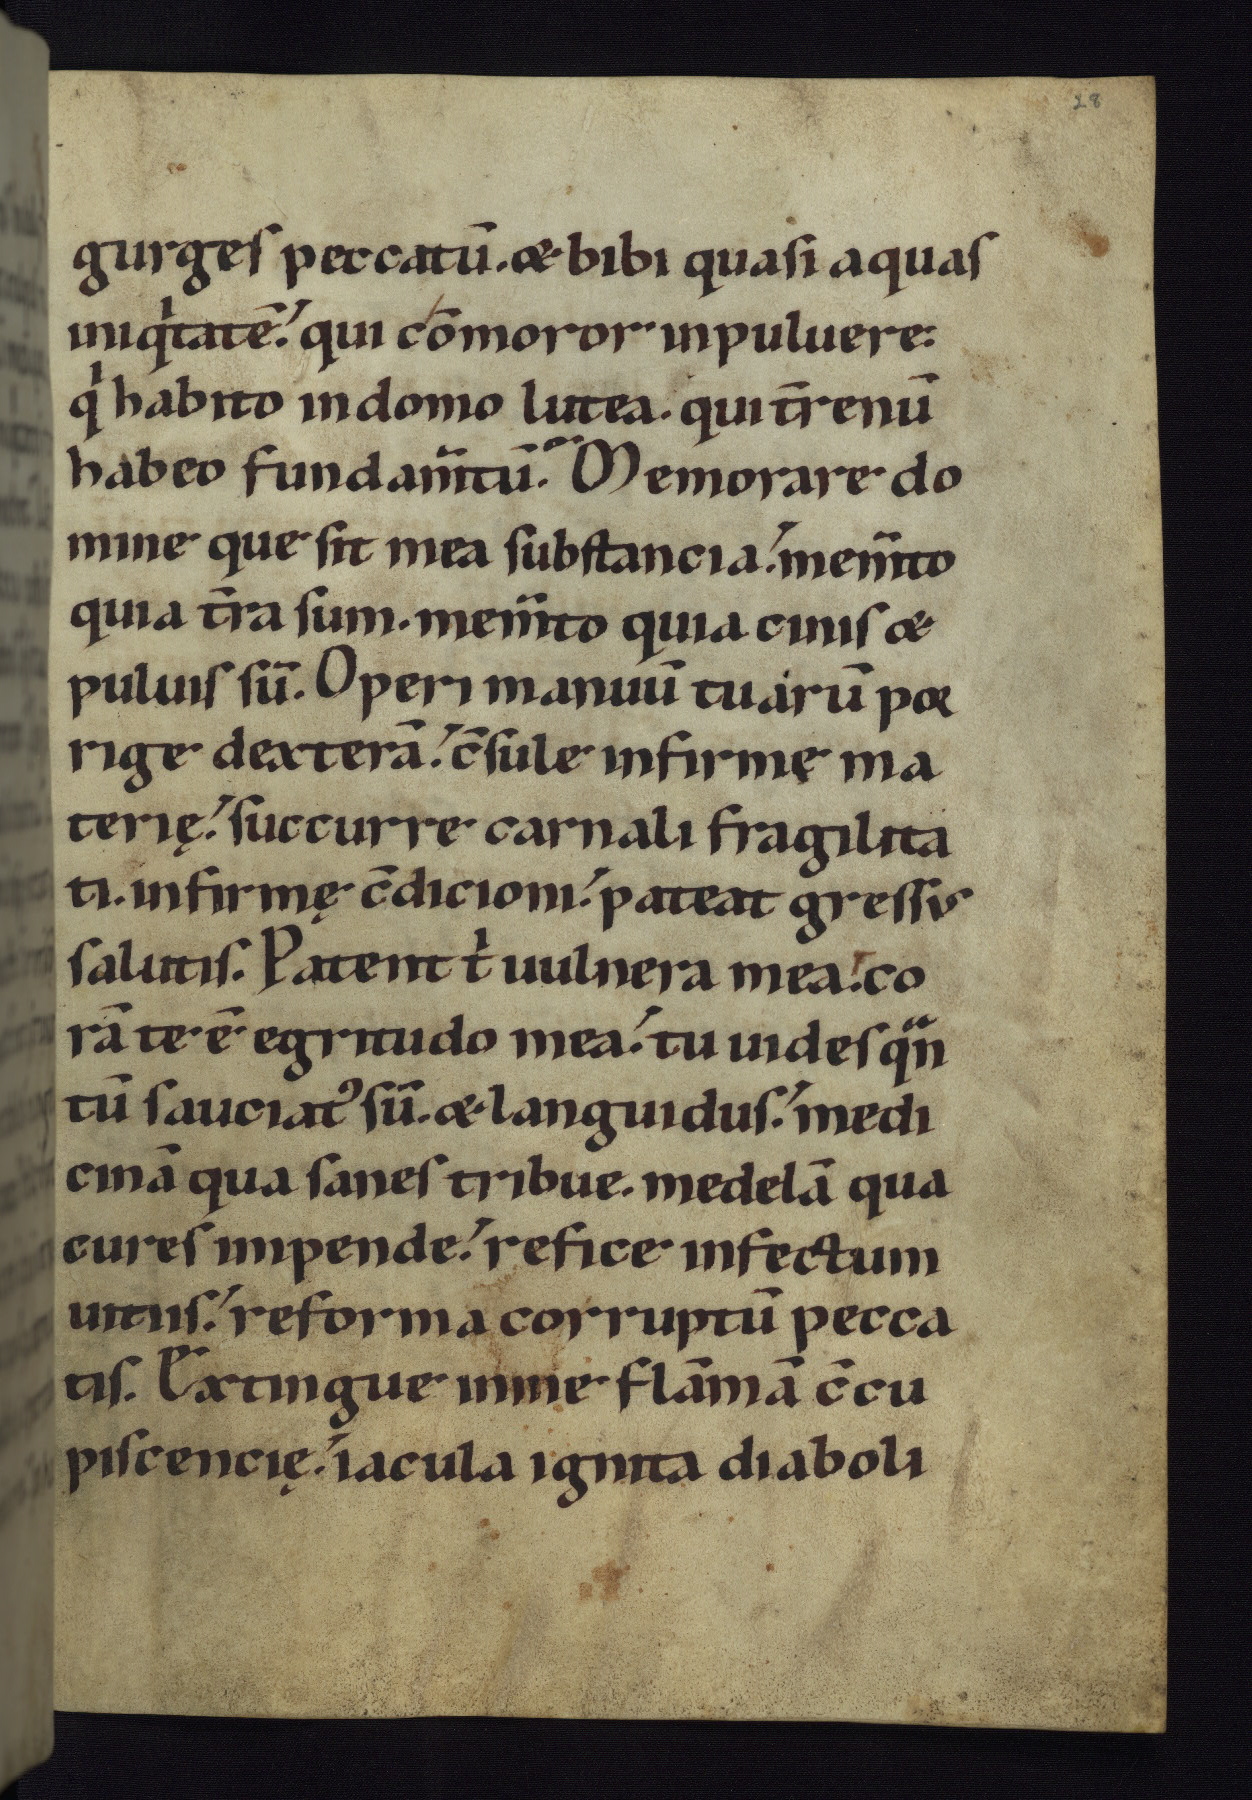 28
gurges peccatū. & bibi quasi aquas
iniqͥtatē. qui cōmoror in puluere:
qͥ habito in domo lutea. qui t̄renū
habeo fundam̄tū. Memorare do
mine que sit mea substancia. mem̄to
quia t̄ra sum. mem̄to quia cinis &
puluis sū. Operi manuū tuarū por
rige dexterā. c̄sule infirmę ma
terię. succurre carnali fragilita
ti. infirmę c̄dicioni. pateat gressus
salutis. Patent tͥ uulnera mea. co
rā te ē egritudo mea. tu uides qn̄
tū sauciatꝰ sū. & languidus. medi
cinā qua sanes tribue. medelā qua
cures impende. refice infectum
uitiis. reforma corruptū pecca
tis. Extingue in me flāmā c̄cu
piscencię. iacula ignita diaboli